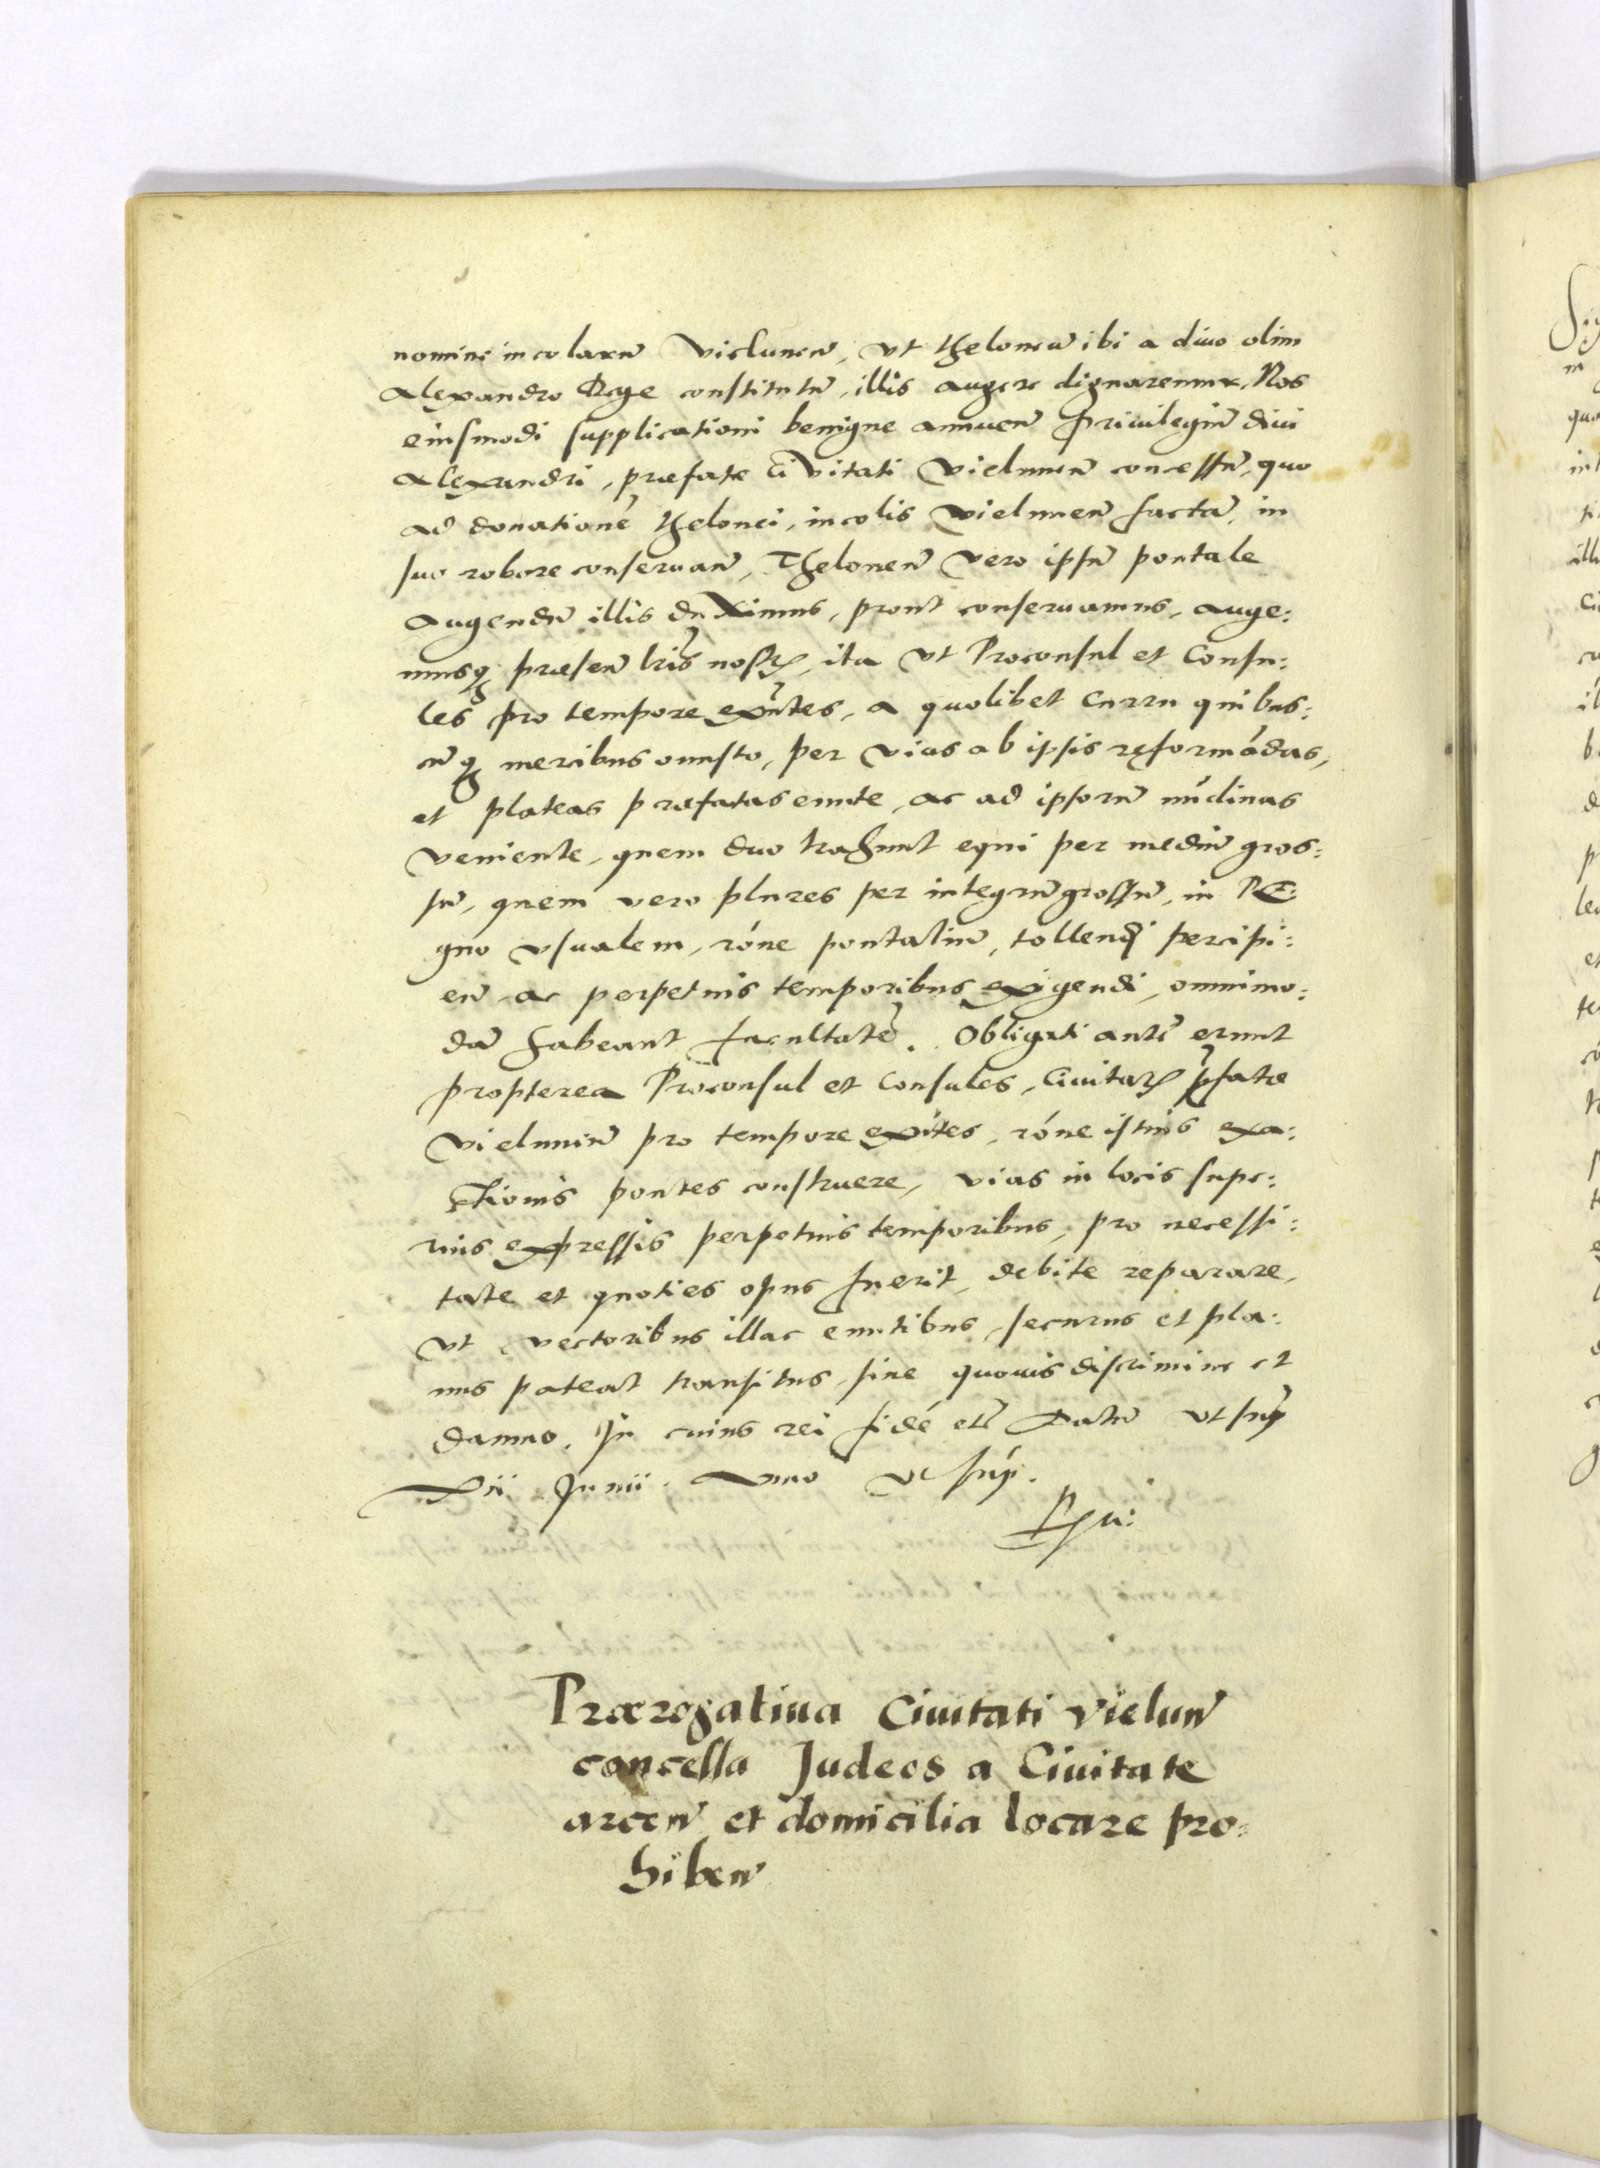 nomine incolarum Vielunen, vt theloneum ibi a diuo olim
Alexandro Rege constitutum, illis augere dignaremur, Nos
eiusmodi supplicationi benigne annuen priuilegium diui
Alexandri, præfate Ciuitati Vielunen concessum, quo
ad donationē thelonei, incolis Vielunen factam, in
suo robore conseruan, Theloneum vero ipsum pontale
augendum illis duximus, prout conseruamus, auge:
musq præsen lris nostris, ita vt Proconsul et Consu:
les pro tempore exntes, a quolibet curru quibus:
cumq mercibus onusto, per vias ab ipsis reformādas,
et plateas præfatas eunte, ac ad ipsorum nūdinas
veniente, quem duo trahunt equi per medium gros:
sum, quem vero plures per integrum grossum, in RE:
gno vsualem, rōne pontalium, tollendi percipi:
en, ac perpetuis temporibus exigendi, omnimo:
dam habeant facultatē. Obligati autē erunt
propterea Proconsul et Consules, Ciuitatis pfatæ
Vielunen pro tempore exntes, rōne istius exa:
ctionis pontes construere, vias in locis supe:
rius expressis perpetuis temporibus, pro necessi:
tate et quoties opus fuerit, debite reparare,
vt vectoribus illac euntibus, securus et pla:
nus pateat transitus, sine quouis discrimine et
damno. In cuius rei fidē etc Datum vt sup
Xii Junii. Anno vt sup.
Prærogatiua Ciuitati Vielun
concessa Judeos a Ciuitate
arcen et domicilia locare pro:
hiben